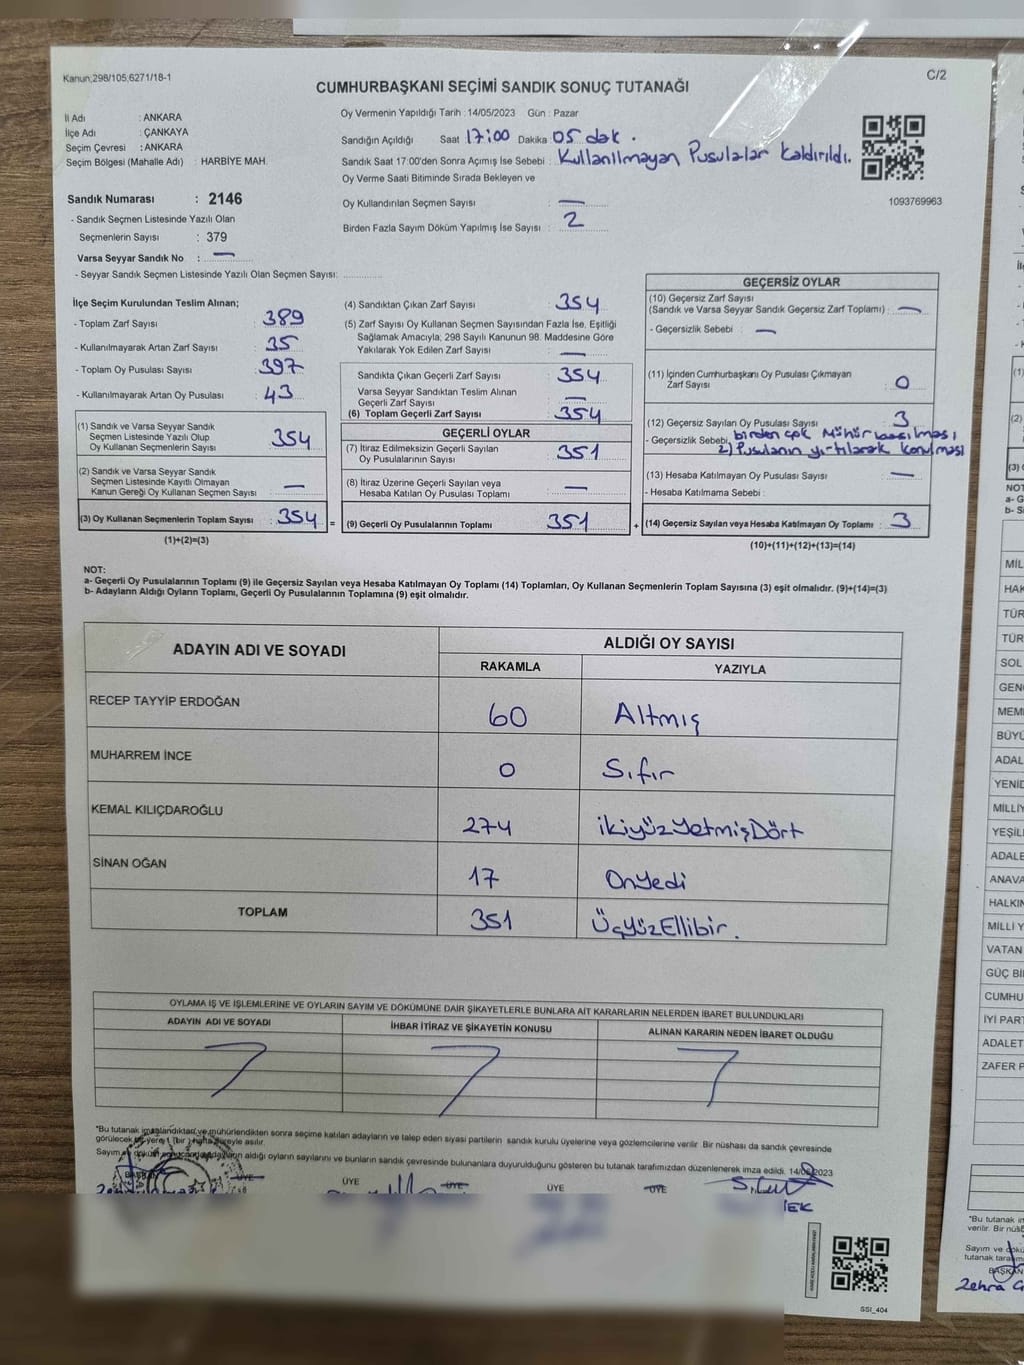 Kanun;298/105;6271/18-1
C/2
CUMHURBAŞKANI SEÇİMİ SANDIK SONUÇ TUTANAĞI
İl Adı : ANKARA
İlçe Adı : ÇANKAYA
Seçim Çevresi : ANKARA
Seçim Bölgesi (Mahalle Adı) : HARBİYE MAH.
Oy Vermenin Yapıldığı Tarih : 14/05/2023 Gün : Pazar
Sandığın Açıldığı Saat 17:00 Dakika 05 dak.
Sandık Saat 17:00'den Sonra Açımış İse Sebebi : Kullanılmayan Pusulalar Kaldırıldı.
Oy Verme Saati Bitiminde Sırada Bekleyen ve
Oy Kullandırılan Seçmen Sayısı : —
Birden Fazla Sayım Döküm Yapılmış İse Sayısı : 2
1093769963
Sandık Numarası : 2146
- Sandık Seçmen Listesinde Yazılı Olan
Seçmenlerin Sayısı : 379
Varsa Seyyar Sandık No : —
- Seyyar Sandık Seçmen Listesinde Yazılı Olan Seçmen Sayısı:
İlçe Seçim Kurulundan Teslim Alınan;
- Toplam Zarf Sayısı : 389
- Kullanılmayarak Artan Zarf Sayısı : 35
- Toplam Oy Pusulası Sayısı : 397
- Kullanılmayarak Artan Oy Pusulası : 43
(1) Sandık ve Varsa Seyyar Sandık
Seçmen Listesinde Yazılı Olup
Oy Kullanan Seçmenlerin Sayısı : 354
(2) Sandık ve Varsa Seyyar Sandık
Seçmen Listesinde Kayıtlı Olmayan
Kanun Gereği Oy Kullanan Seçmen Sayısı : —
(3) Oy Kullanan Seçmenlerin Toplam Sayısı : 354 =
(1)+(2)=(3)
(4) Sandıktan Çıkan Zarf Sayısı : 354
(5) Zarf Sayısı Oy Kullanan Seçmen Sayısından Fazla İse, Eşitliği
Sağlamak Amacıyla; 298 Sayılı Kanunun 98. Maddesine Göre
Yakılarak Yok Edilen Zarf Sayısı : —
Sandıkta Çıkan Geçerli Zarf Sayısı : 354
Varsa Seyyar Sandıktan Teslim Alınan
Geçerli Zarf Sayısı : —
(6) Toplam Geçerli Zarf Sayısı : 354
GEÇERLİ OYLAR
(7) İtiraz Edilmeksizin Geçerli Sayılan
Oy Pusulalarının Sayısı : 351
(8) İtiraz Üzerine Geçerli Sayılan veya
Hesaba Katılan Oy Pusulası Toplamı : —
(9) Geçerli Oy Pusulalarının Toplamı : 351 +
GEÇERSİZ OYLAR
(10) Geçersiz Zarf Sayısı
(Sandık ve Varsa Seyyar Sandık Geçersiz Zarf Toplamı) : —
- Geçersizlik Sebebi : —
(11) İçinden Cumhurbaşkanı Oy Pusulası Çıkmayan
Zarf Sayısı : 0
(12) Geçersiz Sayılan Oy Pusulası Sayısı : 3
- Geçersizlik Sebebi : birden çok Mühür basılması
2) Pusulanın yırtılarak konulması
(13) Hesaba Katılmayan Oy Pusulası Sayısı : —
- Hesaba Katılmama Sebebi :
(14) Geçersiz Sayılan veya Hesaba Katılmayan Oy Toplamı : 3
(10)+(11)+(12)+(13)=(14)
NOT:
a- Geçerli Oy Pusulalarının Toplamı (9) ile Geçersiz Sayılan veya Hesaba Katılmayan Oy Toplamı (14) Toplamları, Oy Kullanan Seçmenlerin Toplam Sayısına (3) eşit olmalıdır. (9)+(14)=(3)
b- Adayların Aldığı Oyların Toplamı, Geçerli Oy Pusulalarının Toplamına (9) eşit olmalıdır.
ADAYIN ADI VE SOYADI
ALDIĞI OY SAYISI
RAKAMLA YAZIYLA
RECEP TAYYİP ERDOĞAN 60 Altmış
MUHARREM İNCE 0 Sıfır
KEMAL KILIÇDAROĞLU 274 ikiyüzYetmişDört
SİNAN OĞAN 17 OnYedi
TOPLAM 351 ÜçyüzEllibir.
OYLAMA İŞ VE İŞLEMLERİNE VE OYLARIN SAYIM VE DÖKÜMÜNE DAİR ŞİKAYETLERLE BUNLARA AİT KARARLARIN NELERDEN İBARET BULUNDUKLARI
ADAYIN ADI VE SOYADI
İHBAR İTİRAZ VE ŞİKAYETİN KONUSU
ALINAN KARARIN NEDEN İBARET OLDUĞU
*Bu tutanak imzalandıktan ve mühürlendikten sonra seçime katılan adayların ve talep eden siyasi partilerin sandık kurulu üyelerine veya gözlemcilerine verilir. Bir nüshası da sandık çevresinde
görülecek bir yere 1 (bir) hafta süreyle asılır.
Sayım ve döküm sonucunda adayların aldığı oyların sayılarını ve bunların sandık çevresinde bulunanlara duyurulduğunu gösteren bu tutanak tarafımızdan düzenlenerek imza edildi. 14/05/2023
BAŞKAN ÜYE ÜYE ÜYE ÜYE
Zehra
SSI_404
MİL
HAK
TÜR
TÜR
SOL
GEN
MEM
BÜYÜ
ADAL
YENİD
MİLLİY
YEŞİL
ADALE
ANAVA
HALKIN
MİLLİ Y
VATAN
GÜÇ Bİ
CUMHU
İYİ PART
ADALET
ZAFER P
*Bu tutanak
verilir. Bir
Sayım ve
tutanak
BAŞKAN
Zehra